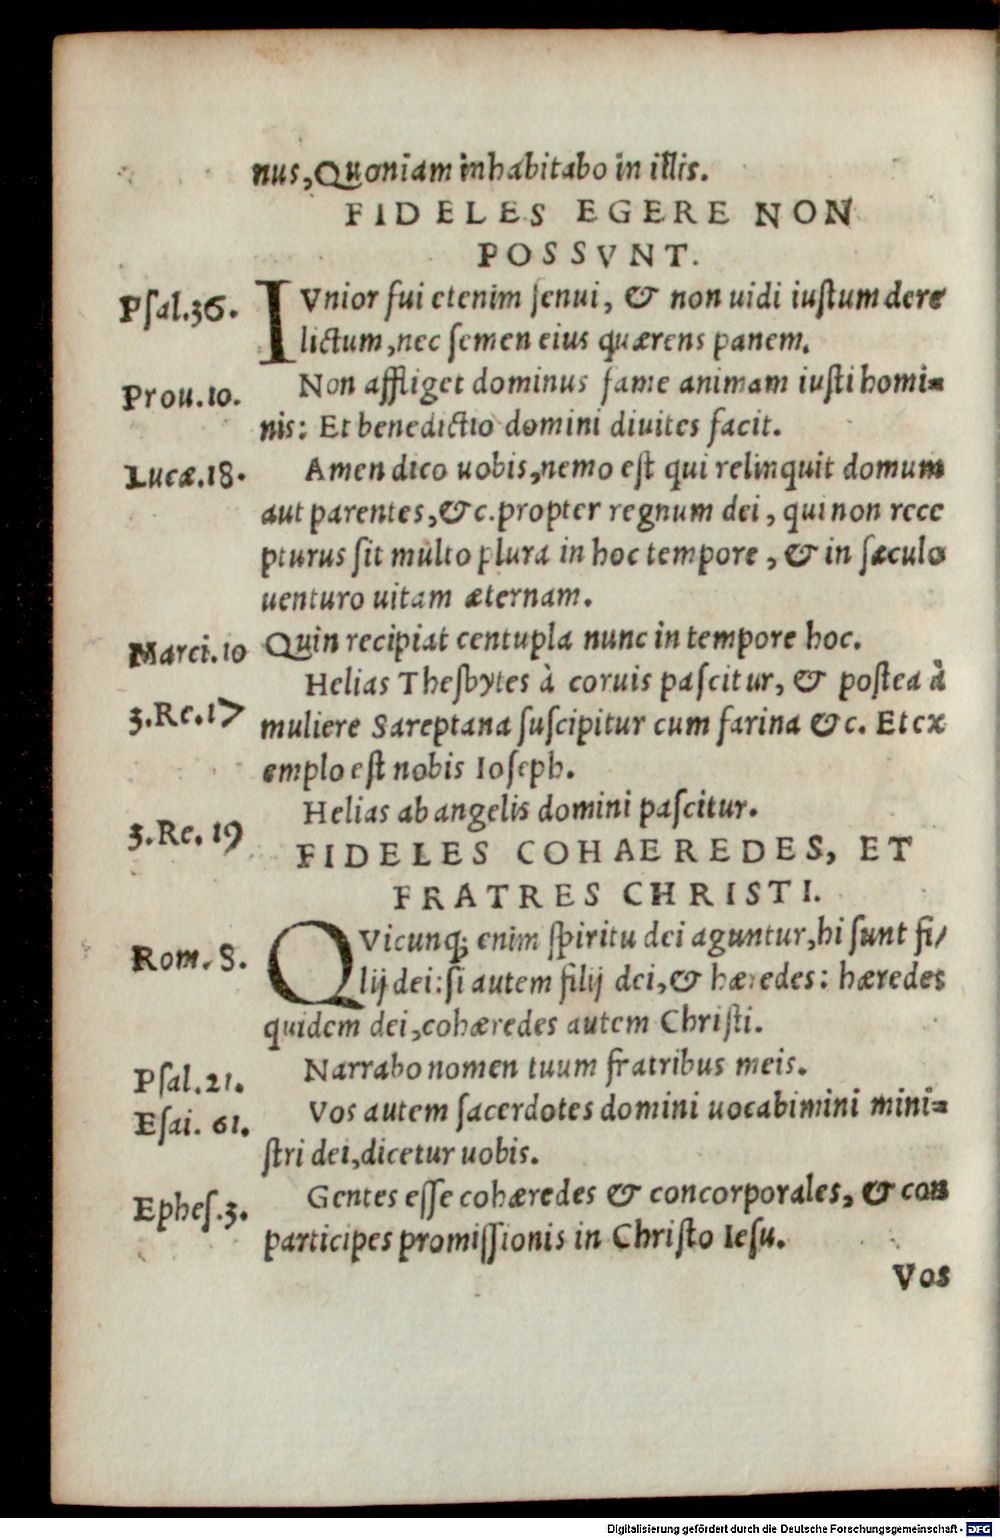 nus, Quoniam inhabitabo in illis.
FIDELES EGERE NON
POSSVNT.
Psal.36. IVnior fui etenim senui, & non uidi iustum dere
lictum, nec semen eius quærens panem.
Prou.10. Non affliget dominus fame animam iusti homi=
nis: Et benedictio domini diuites facit.
Lucæ.18. Amen dico uobis, nemo est qui relinquit domum
aut parentes, &c. propter regnum dei, qui non rece
pturus sit multo plura in hoc tempore, & in sæculo
uenturo uitam æternam.
Marci.10 Quin recipiat centupla nunc in tempore hoc.
Helias Thesbytes à coruis pascitur, & postea à
3.Re.17 muliere Sareptana suscipitur cum farina &c. Et ex
emplo est nobis Ioseph.
Helias ab angelis domini pascitur.
3.Re. 19
FIDELES COHAEREDES, ET
FRATRES CHRISTI.
Rom. 8. QVicunq; enim spiritu dei aguntur, hi sunt fi/
lij dei: si autem filij dei, & hæredes: hæredes
quidem dei, cohæredes autem Christi.
Psal.21. Narrabo nomen tuum fratribus meis.
Esai. 61. Vos autem sacerdotes domini uocabimini mini=
stri dei, dicetur uobis.
Ephes.3. Gentes esse cohæredes & concorporales, & con
participes promissionis in Christo Iesu.
Vos
Digitalisierung gefördert durch die Deutsche Forschungsgemeinschaft - DFG